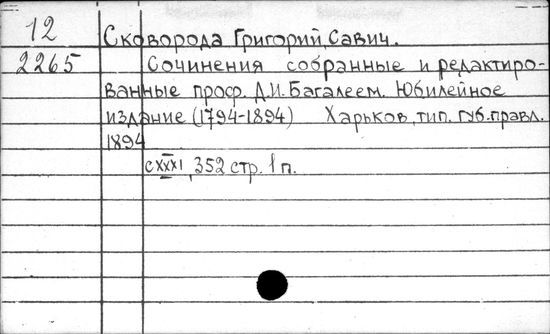 12 Сковорода Григорий Савич.
2265 Сочинения собранные и редактиро-
ванные проф. Д.И. Багалеем. Юбилейное
издание (1794-1894) Харьков, тип. губ. правл.
1894
CXXXI, 352 стр. 1 п.